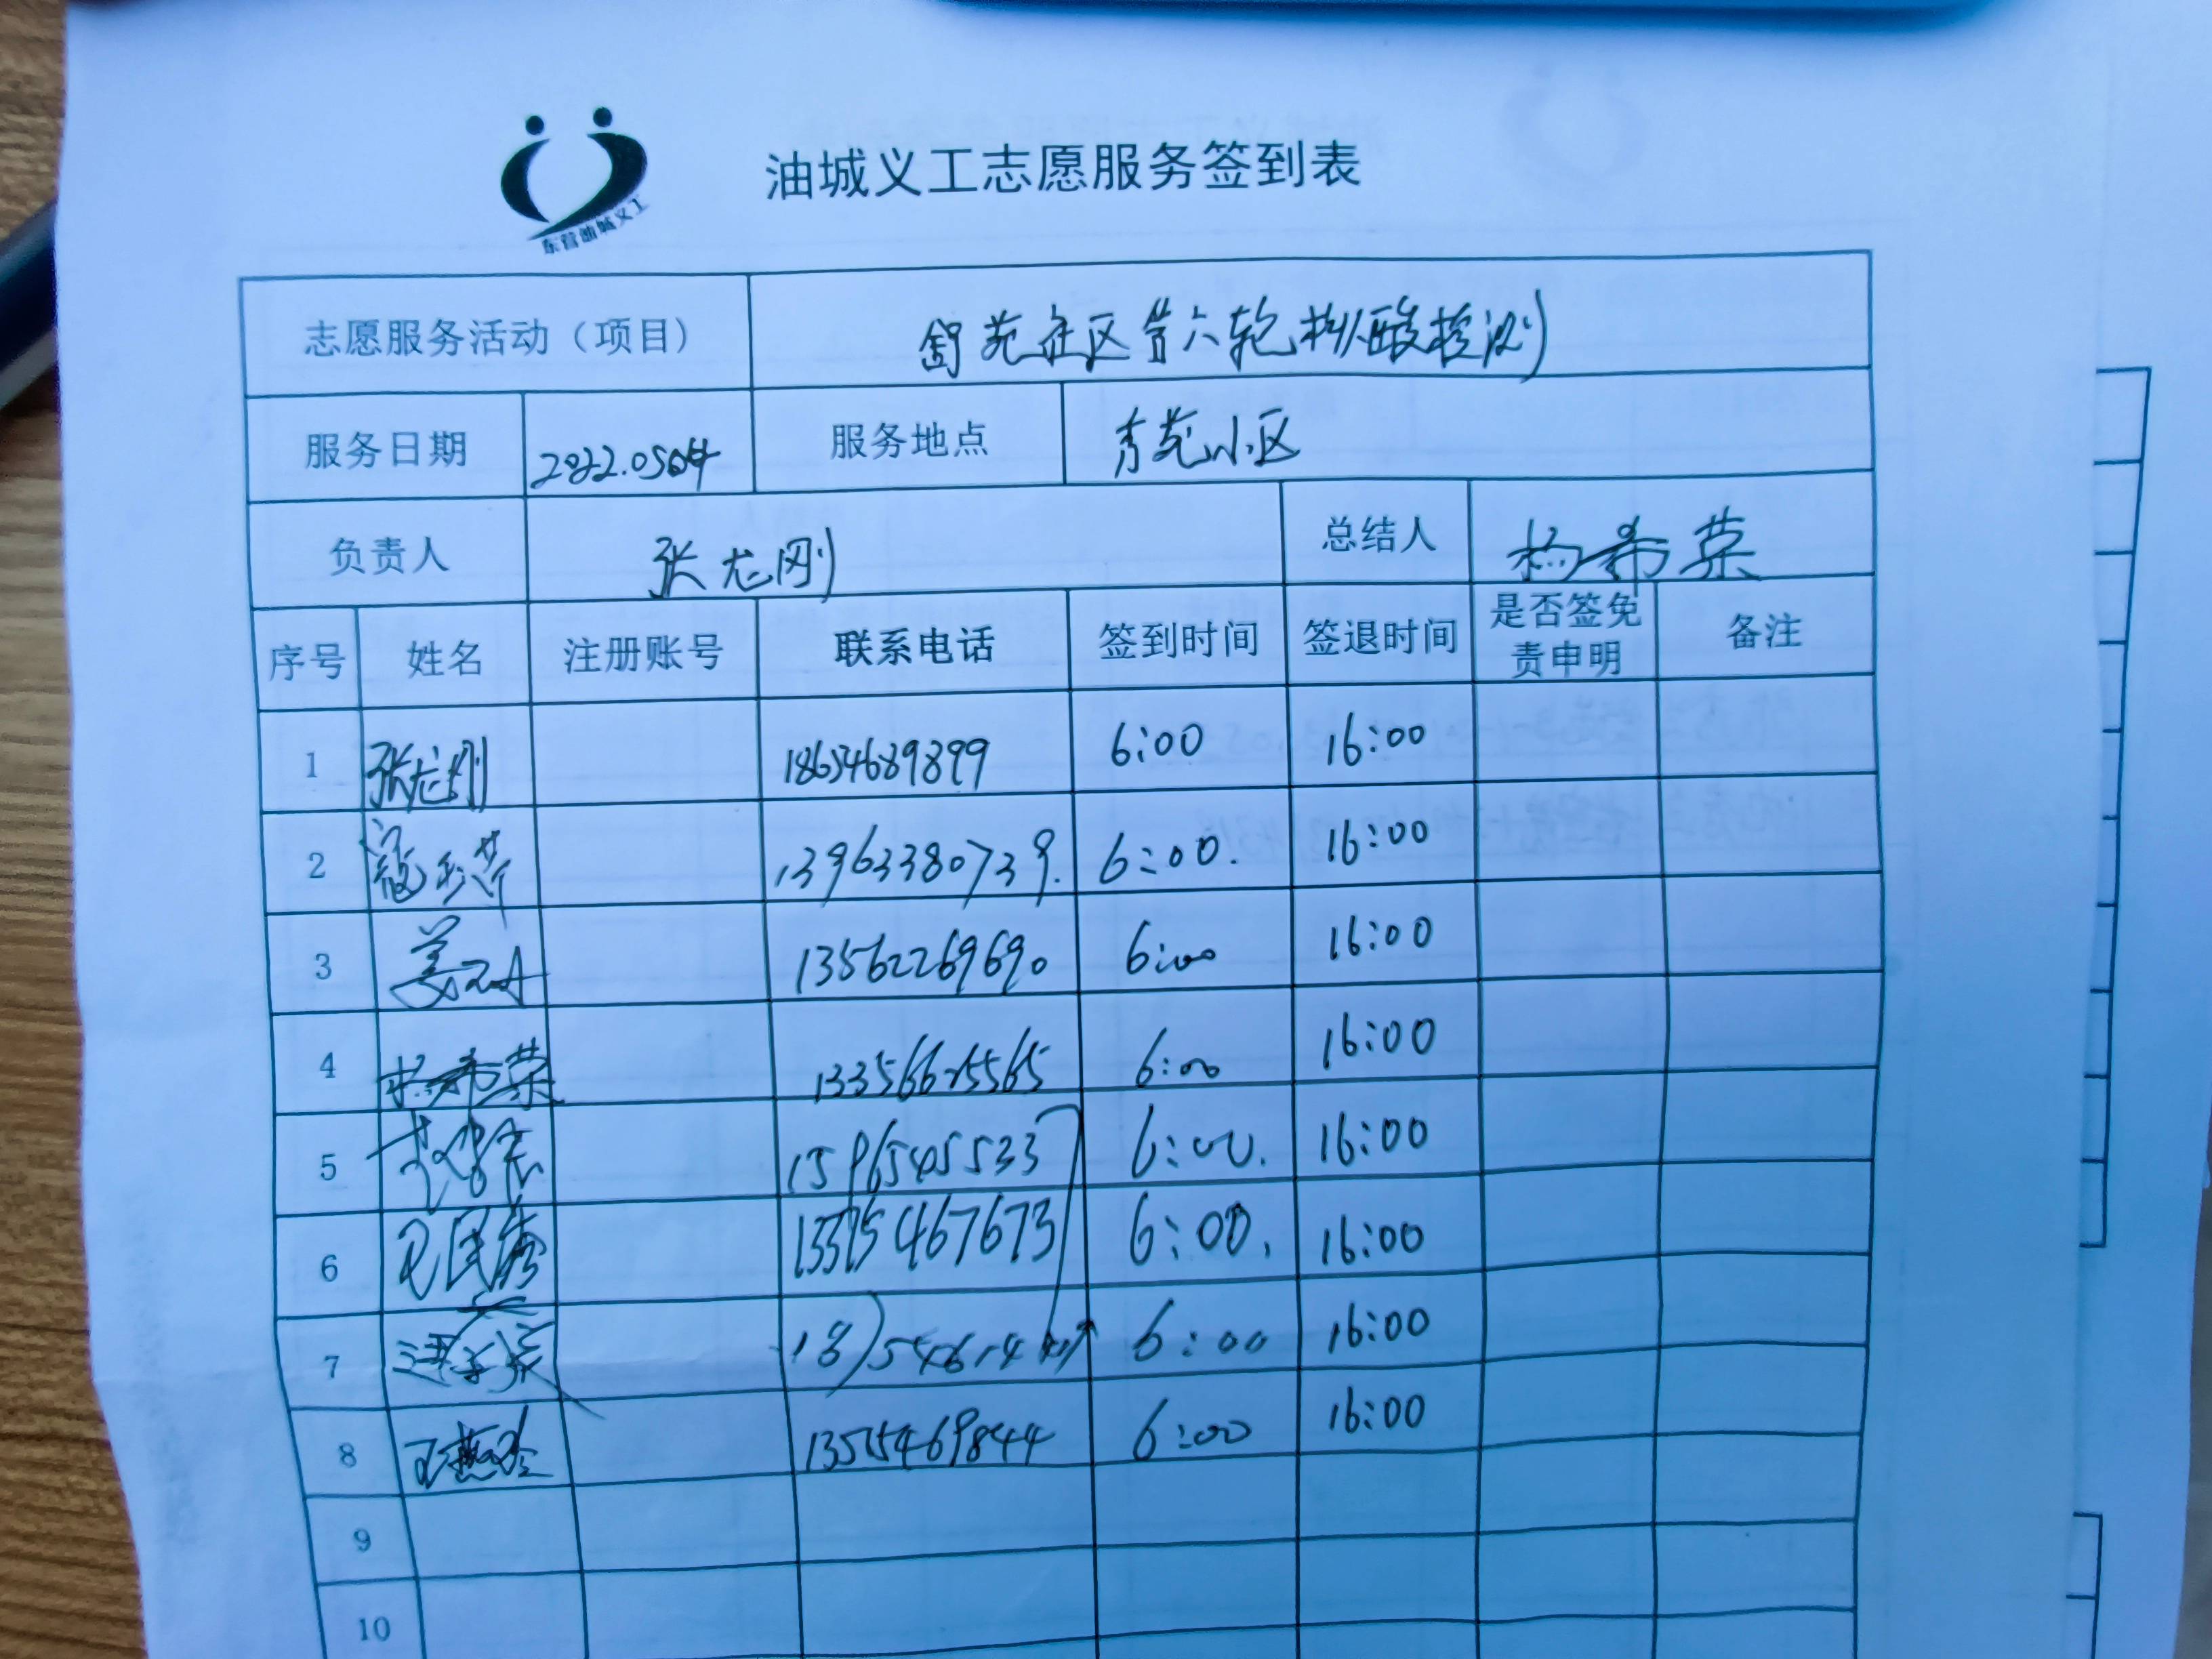 油城义工志愿服务签到表
东营油城义工
志愿服务活动（项目） 舒苑社区第六轮核酸检测
服务日期 2022.0504 服务地点 青苑小区
负责人 张龙刚 总结人 杨希荣
序号 姓名 注册账号 联系电话 签到时间 签退时间 是否签免责申明 备注
1 张龙刚 18654689899 6:00 16:00
2 13963380739. 6:00. 16:00
3 姜 13562269690 6:00 16:00
4 杨希荣 13356625565 6:00 16:00
5 6:00. 16:00
6 13375467673 6:00. 16:00
7 6:00 16:00
8 13515469844 6:00 16:00
9
10